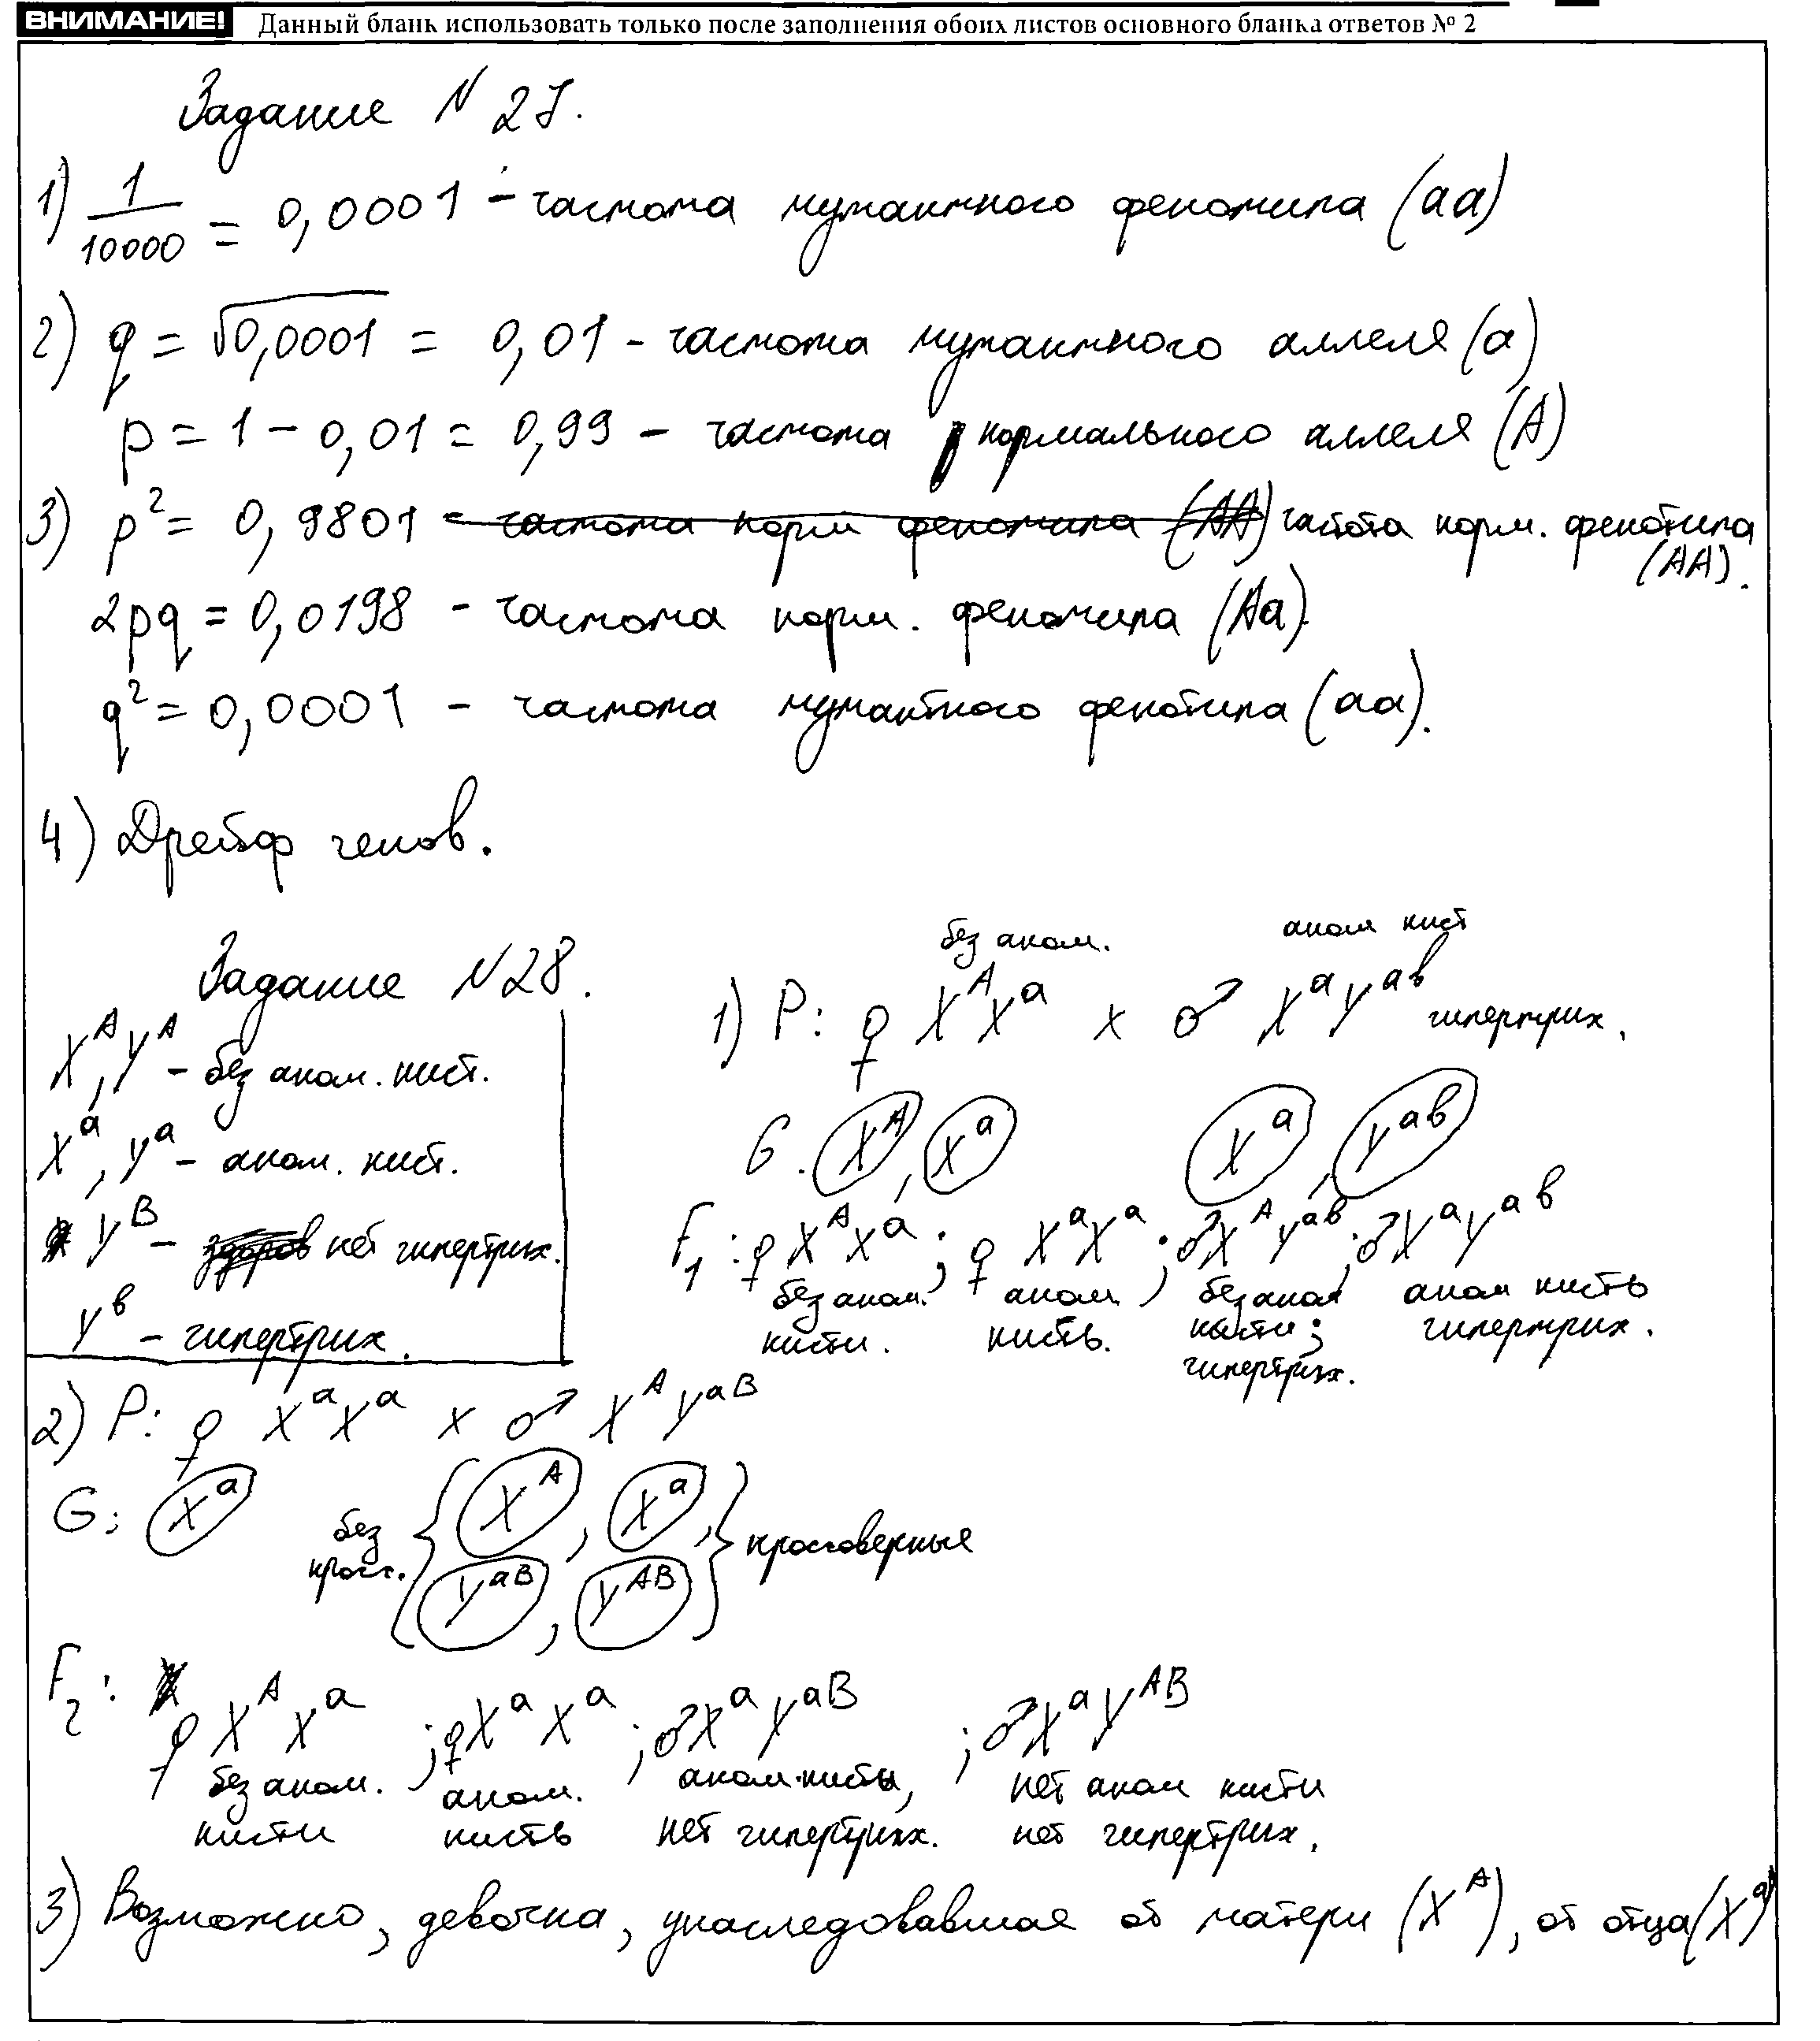 ВНИМАНИЕ! Данный бланк использовать только после заполнения обоих листов основного бланка ответов № 2
Задание N 27.
1) 1/10000 = 0,0001 - частота мутантного фенотипа (aa)
2) q = √0,0001 = 0,01 - частота мутантного аллеля (a)
p = 1 - 0,01 = 0,99 - частота нормального аллеля (A)
3) p² = 0,9801 - частота норм фенотипа (AA) частота норм. фенотипа (AA).
2pq = 0,0198 - частота норм. фенотипа (Aa).
q² = 0,0001 - частота мутантного фенотипа (aa).
4) Дрейф генов.
Задание N28.
X^A, Y^A - без аном. кист.
X^a, Y^a - аном. кист.
Y^B - нет гипертрих.
Y^b - гипертрих.
без аном. аном кист
1) P: ♀ X^A X^a x ♂ X^a Y^ab гипертрих.
G. X^A, X^a X^a, Y^ab
F1: ♀ X^A X^a; ♀ X^a X^a; ♂ X^A Y^ab; ♂ X^a Y^ab
без аном. аном. без аном аном кисть
кисти. кисть. кисти; гипертрих.
гипертрих.
2) P: ♀ X^a X^a x ♂ X^A Y^aB
G: X^a без кросс. { X^A, X^a, Y^aB, Y^AB } кроссоверные
F2: ♀ X^A X^a; ♀ X^a X^a; ♂ X^a Y^aB; ♂ X^a Y^AB
без аном. аном. аном. кисть, нет аном кисти
кисти кисть нет гипертрих. нет гипертрих.
3) Возможно, девочка, унаследовавшая от матери (X^A), от отца (X^a)